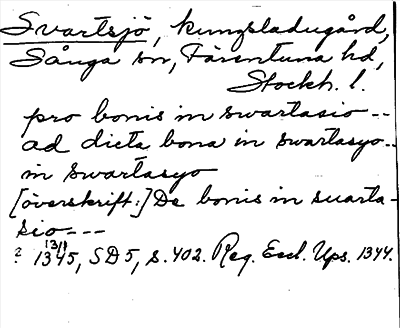 Svartsjö, kungsladugård,
Sånga sn, Färentuna hd,
Stockh. l.
pro bonis in swartasio --
ad dicta bona in swartasyo --
in swartasyo
[överskrift:] De bonis in suarta-
sio ---
13/1
? 1345, SD5, s. 402. Reg. Eccl. Ups. 1344.